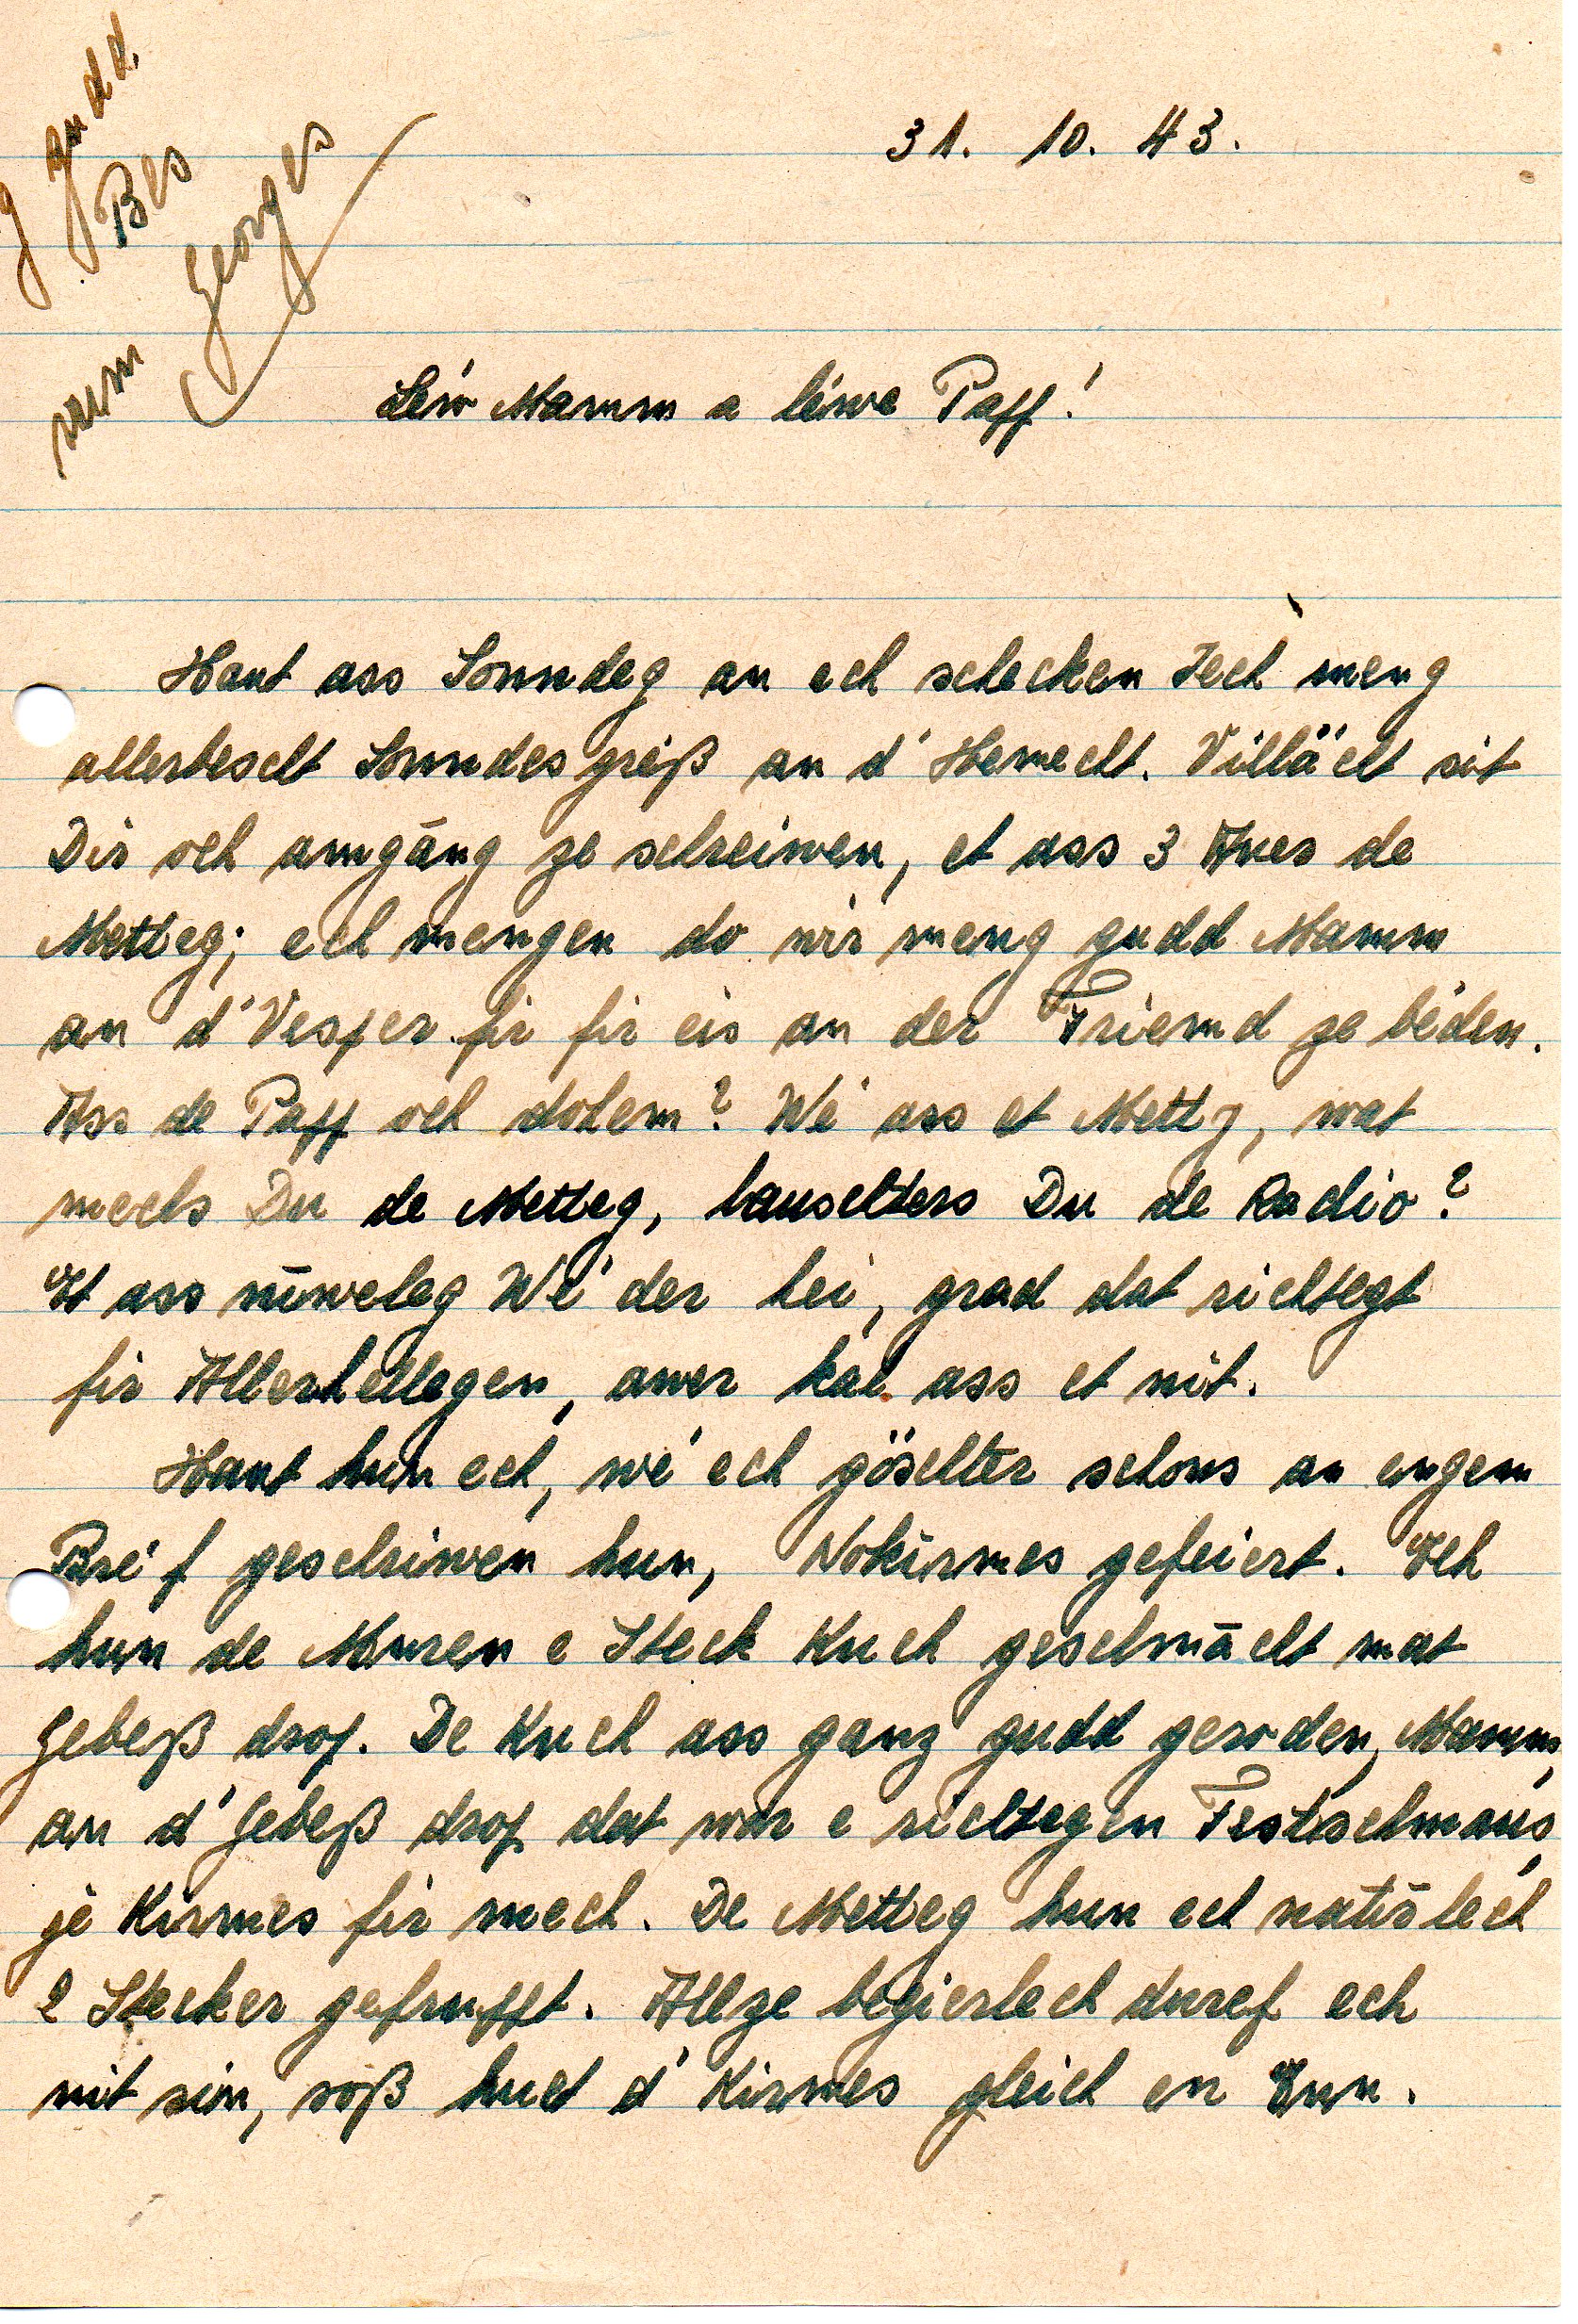 31. 10. 43.
gudd
Bes
vum Georges
Léiw Mamm a léiwe Papp!
Haut ass Sonndeg an ech schecken Iech meng
allerbescht Sonndesgréiß an d'Hemecht. Villäicht sit
Dir och amgāng ze schreiwen, et ass 3 Auer de
Metteg; ech mengen do wir meng gudd Mamm
an d'Vesper fir fir eis an der Friemd ze bieden.
Ass de Papp och dohem? Wé ass et Mettg, wat
mechs Du de Metteg, lauschters Du de Radio?
Et ass niweleg Wé'der hei, grad dat richtegt
fir Allerhellegen, awer kal ass et nit.
Haut hun ech, wé ech göschter schons an engem
Bréif geschriwen hun, Nokirmes gefeiert. Ech
hun de Muren e Steck Kuch geschmācht mat
Gebeß drop. De Kuch ass ganz gudd geroden, Mamm,
an d'Gebeß drop dat wor e richtegen Festschmaus,
jé Kirmes fir mech. De Metteg hun ech natirlech
2 Stecker gefruppt. Allze begierlech duref ech
nit sin, soß huet d'Kirmes gleich en Enn.